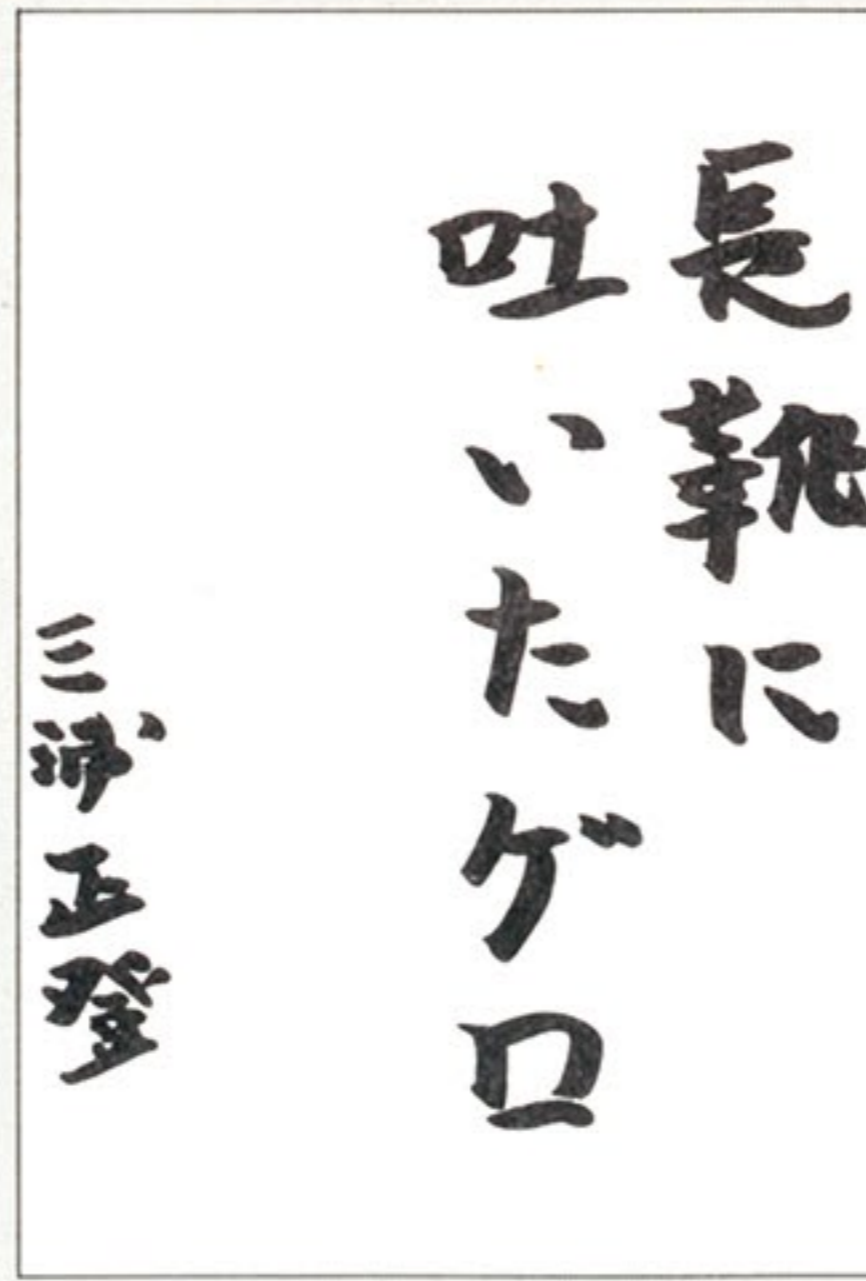 長靴に
吐いたゲロ
三浦正登